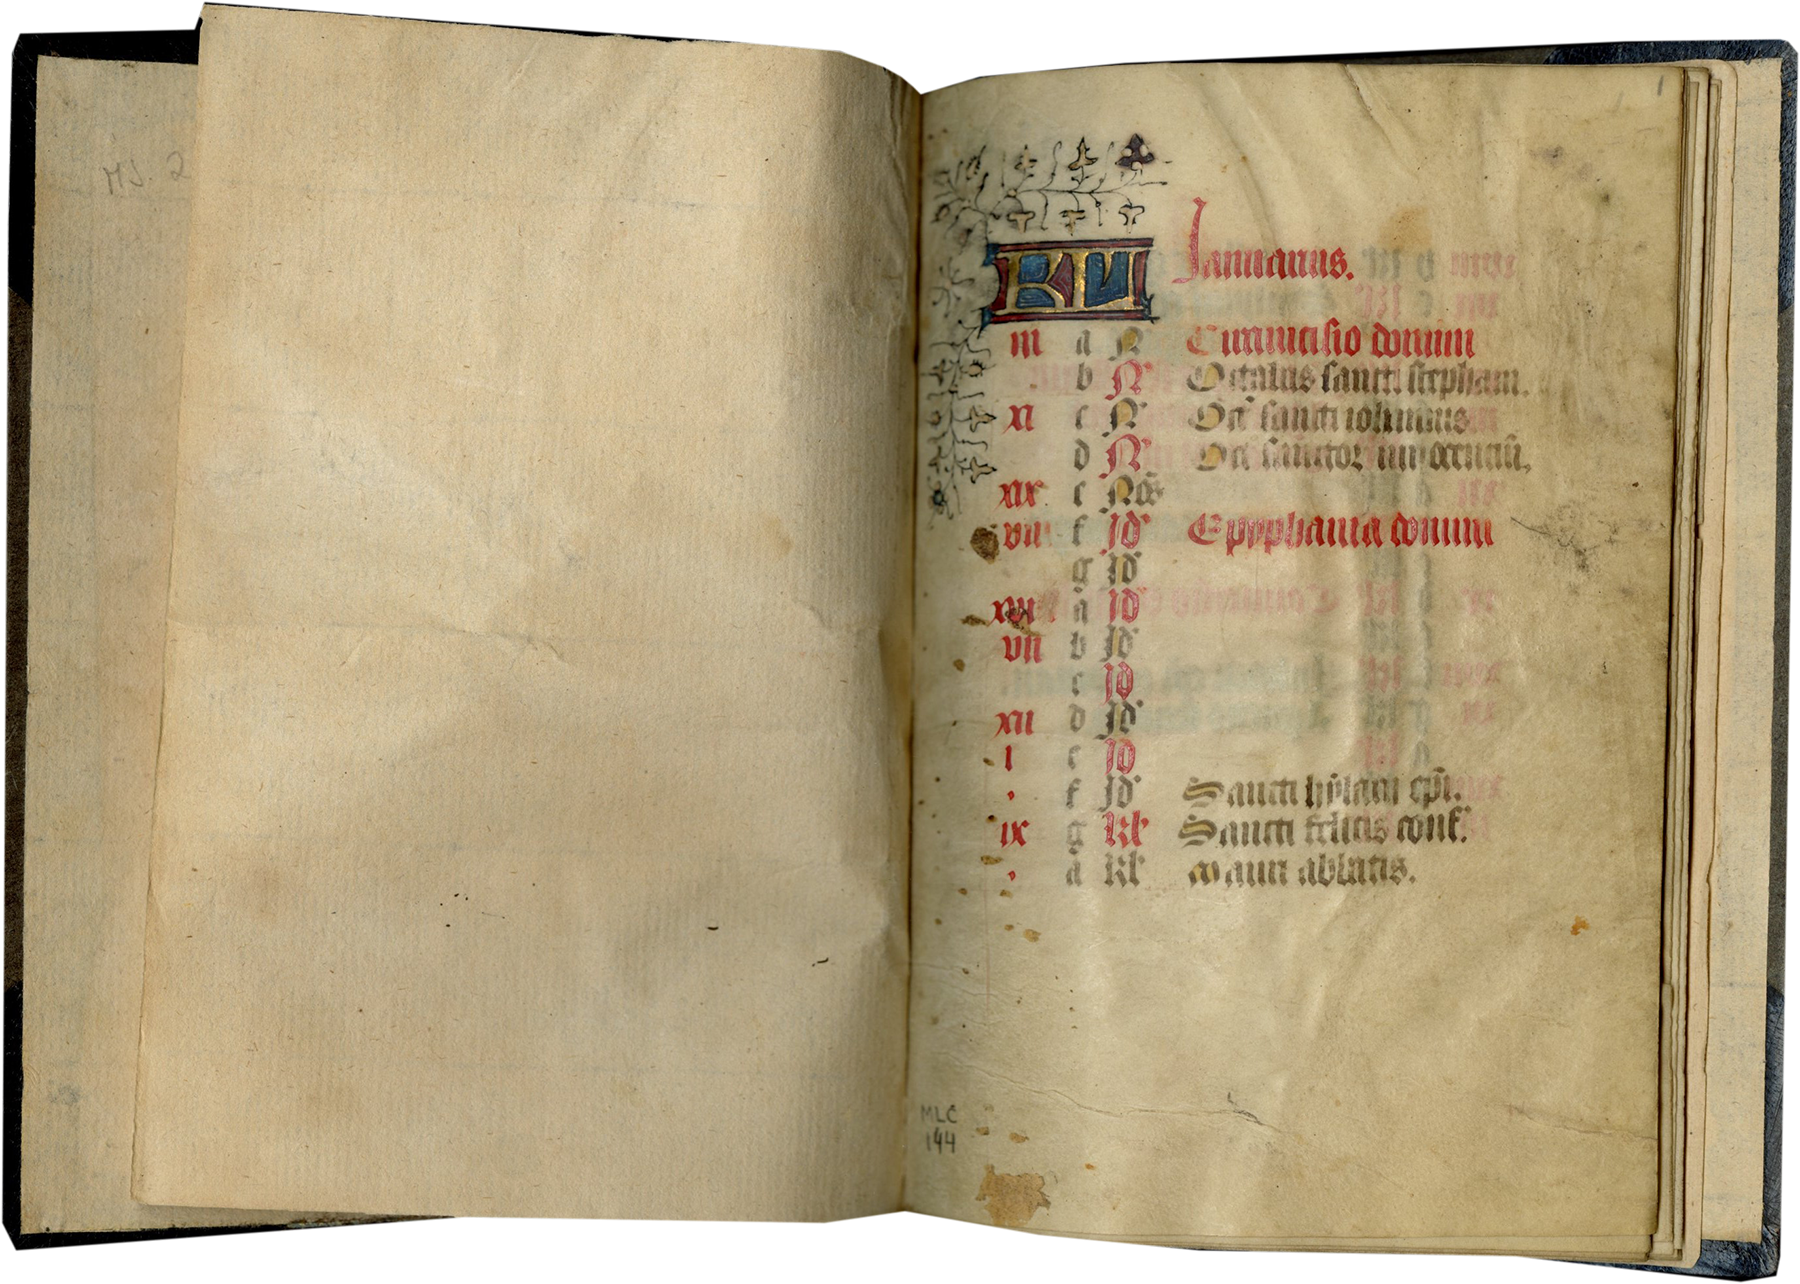 MS. 2
1
KL Januarius.
iii a N Circumcisio domini
b N Octabas sancti stephani.
xi c N Oct sancti iohannis
d N Oct sanctor innocenciū.
xix e Nōs
viii f Jd Epyphania domini
g Jd
xvi a Jd
vii b Jd
c Jd
xiii d Jd
i e Jd
. f Jd Sancti hylarii epī.
ix g Kl Sancti felicis conf.
. a Kl Mauri abbatis.
MLC
144